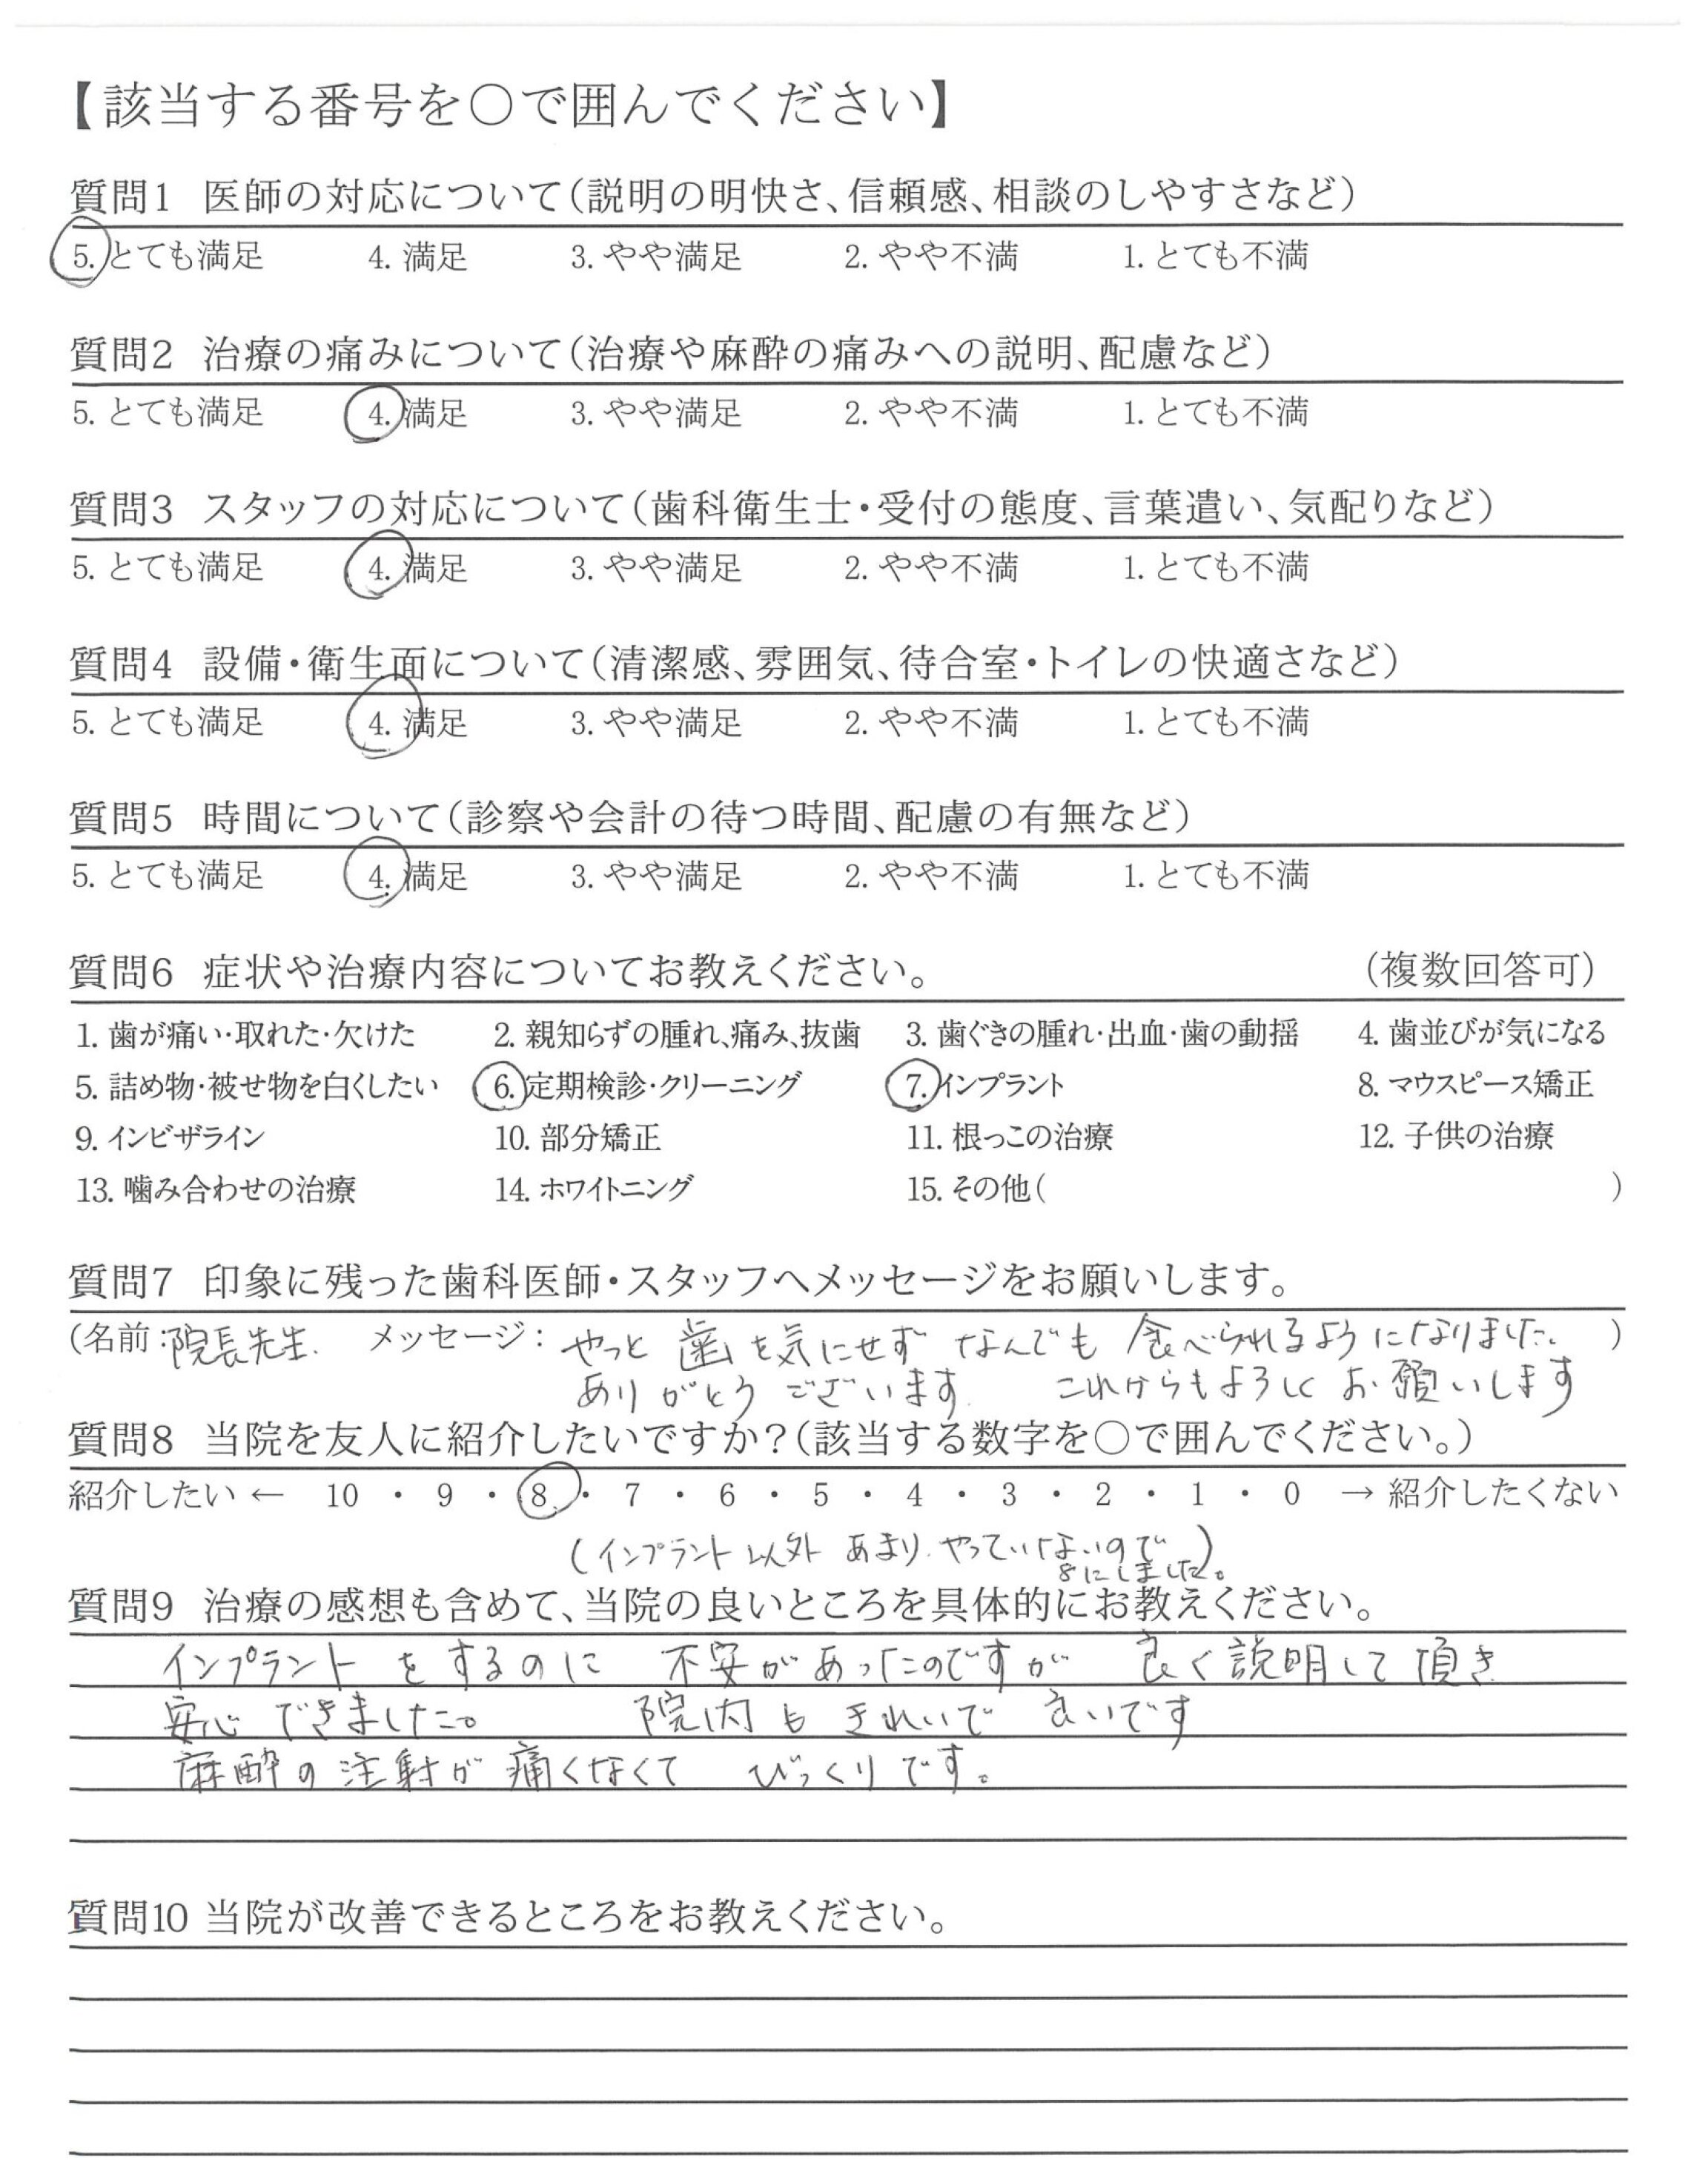 【該当する番号を○で囲んでください】
質問1 医師の対応について(説明の明快さ、信頼感、相談のしやすさなど)
5. とても満足 4. 満足 3. やや満足 2. やや不満 1. とても不満
質問2 治療の痛みについて(治療や麻酔の痛みへの説明、配慮など)
5. とても満足 4. 満足 3. やや満足 2. やや不満 1. とても不満
質問3 スタッフの対応について(歯科衛生士・受付の態度、言葉遣い、気配りなど)
5. とても満足 4. 満足 3. やや満足 2. やや不満 1. とても不満
質問4 設備・衛生面について(清潔感、雰囲気、待合室・トイレの快適さなど)
5. とても満足 4. 満足 3. やや満足 2. やや不満 1. とても不満
質問5 時間について(診察や会計の待つ時間、配慮の有無など)
5. とても満足 4. 満足 3. やや満足 2. やや不満 1. とても不満
質問6 症状や治療内容についてお教えください。 (複数回答可)
1. 歯が痛い・取れた・欠けた 2. 親知らずの腫れ、痛み、抜歯 3. 歯ぐきの腫れ・出血・歯の動揺 4. 歯並びが気になる
5. 詰め物・被せ物を白くしたい 6. 定期検診・クリーニング 7. インプラント 8. マウスピース矯正
9. インビザライン 10. 部分矯正 11. 根っこの治療 12. 子供の治療
13. 噛み合わせの治療 14. ホワイトニング 15. その他( )
質問7 印象に残った歯科医師・スタッフへメッセージをお願いします。
(名前:院長先生. メッセージ: やっと 歯を気にせず なんでも 食べられるようになりました。 )
ありがとう ございます. これからもよろしく お願いします
質問8 当院を友人に紹介したいですか?(該当する数字を○で囲んでください。)
紹介したい ← 10 ・ 9 ・ 8 ・ 7 ・ 6 ・ 5 ・ 4 ・ 3 ・ 2 ・ 1 ・ 0 → 紹介したくない
(インプラント以外 あまり やっていないので
8にしました。)
質問9 治療の感想も含めて、当院の良いところを具体的にお教えください。
インプラント をするのに 不安があったのですが 良く説明して頂き
安心 できました。 院内も きれいで 良いです
麻酔の 注射が 痛くなくて びっくりです。
質問10 当院が改善できるところをお教えください。